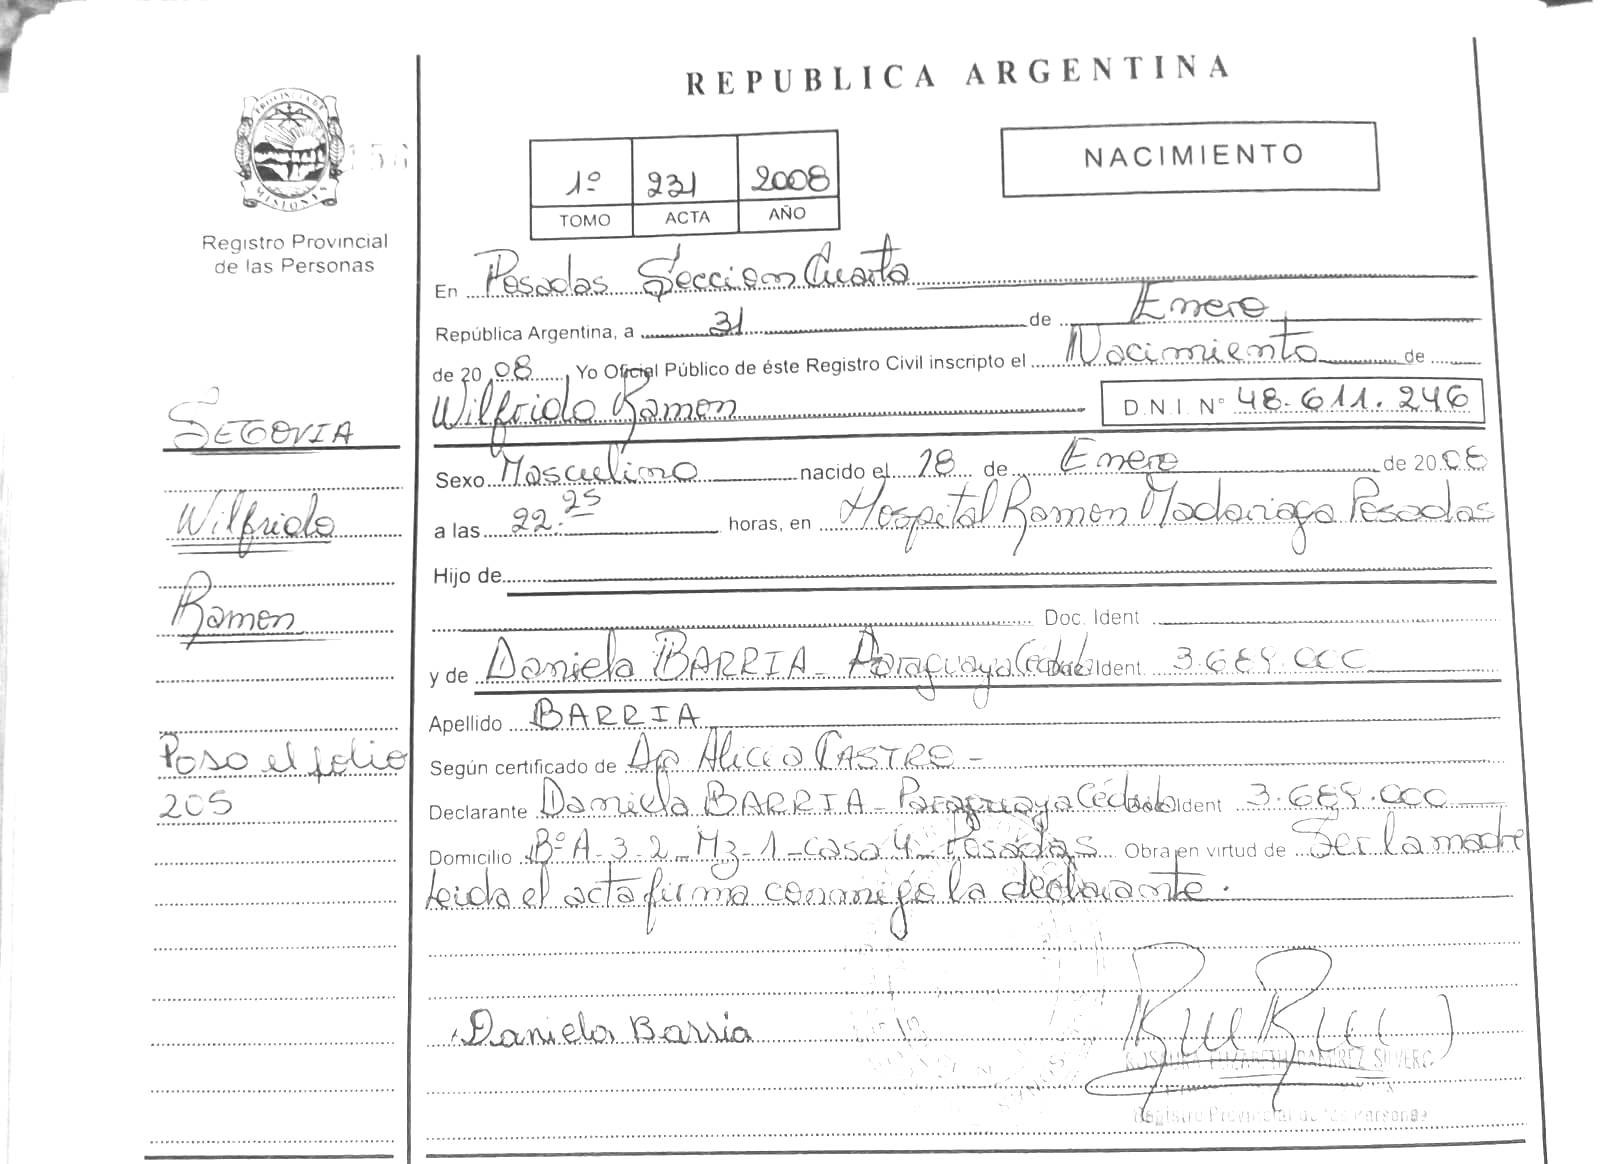 REPUBLICA ARGENTINA
PROVINCIA DE
MISIONES
Registro Provincial
de las Personas
1º 231 2008
TOMO ACTA AÑO
NACIMIENTO
En Posadas Seccion Cuarta
República Argentina, a 31 de Enero
de 20 08 Yo Oficial Público de éste Registro Civil inscripto el Nacimiento de
Wilfrido Ramon D.N.I. Nº 48.611.246
Sexo Masculino nacido el 28 de Enero de 20 08
a las 22.25 horas, en Hospital Ramon Madariaga Posadas
Hijo de
Doc. Ident
y de Daniela BARRIA - Paraguaya Cédula Ident 3.689.000
Apellido BARRIA
Según certificado de Alicia CASTRO -
Declarante Daniela BARRIA - Paraguaya Cédula Ident 3.689.000
Domicilio Bº A-3-2-Mz-1-casa 4-Posadas Obra en virtud de Ser la madre
leida el acta firma conmigo la declarante.
Daniela Barria
RAMIREZ SILVERO
Registro Provincial de las Personas
SEGOVIA
Wilfrido
Ramon
Paso el folio
205